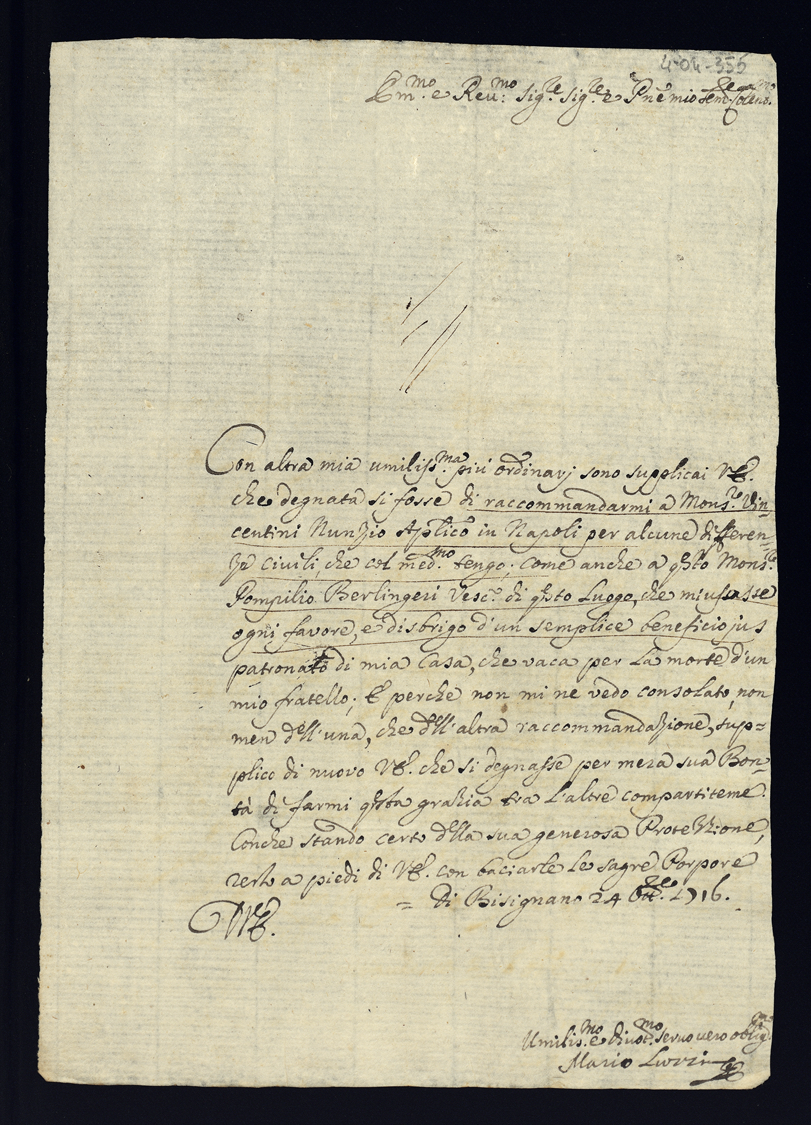 4-04-355
Em.mo e Reu:mo Sig.re Sig.re e Pñe mio
Con altra mia umiliss.ma piú ordinarj sono supplicai VE.
che degnata si fosse di raccommandarmi a Mons.re Vin=
centini Nunzio Aplico in Napoli per alcune differen=
ze civili, che col med.mo tengo; come anche a qsto Mons.re
Pompilio Berlingeri Vesc.o di qsto Luogo, che mi usasse
ogni favore, e disbrigo d'un semplice beneficio jus
patronato di mia Casa, che vaca per la morte d'un
mio fratello; E perche non mi ne vedo consolato, non
men dell'una, che dell'altra raccommandazione, sup=
plico di nuovo VE. che si degnasse per mera sua Bon=
tà di farmi qsta grazia tra l'altre compartiteme.
Conche stando certo della sua generosa Protezzione,
resto a piedi di VE. con baciarle le sagre Porpore
VE. = Di Bisignano 24 Ott.re 1716.
Umilis.mo e diuot.mo seruo uero oblig.mo
Mario Luzzi